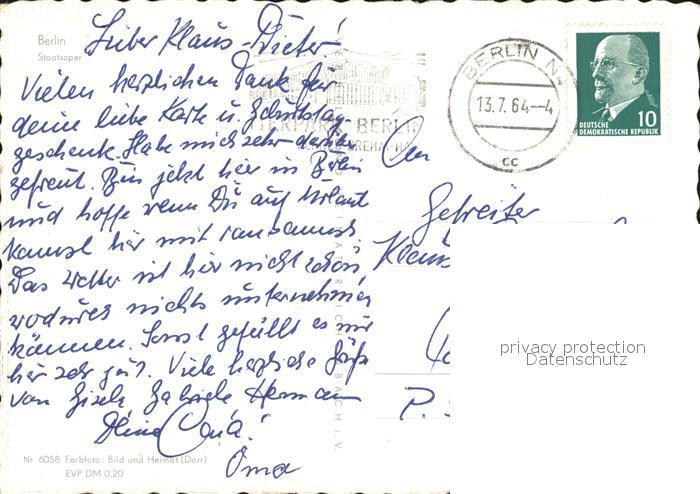 Berlin
Staatsoper
Lieber Klaus-Dieter!
Vielen herzlichen Dank für
deine liebe Karte u. Geburtstag-
geschenk. Habe mich sehr darüber
gefreut. Bin jetzt hier in Berlin
und hoffe wenn Du auf Urlaub
kommst hier mit
Das Wetter ist hier nicht schön
wodurch nichts unternehmen
können. Sonst gefällt es mir
hier sehr gut. Viele herzliche Grüße
von Gisela Gabriele Hermann
Deine
Oma
Nr. 6058 Farbfoto: Bild und Heimat (Dorr)
EVP DM 0,20
TIERPARK-BERLIN
BERLIN N4
13.7.64--4
cc
10
DEUTSCHE
DEMOKRATISCHE REPUBLIK
An
Gefreiter
Klaus
P.
privacy protection
Datenschutz